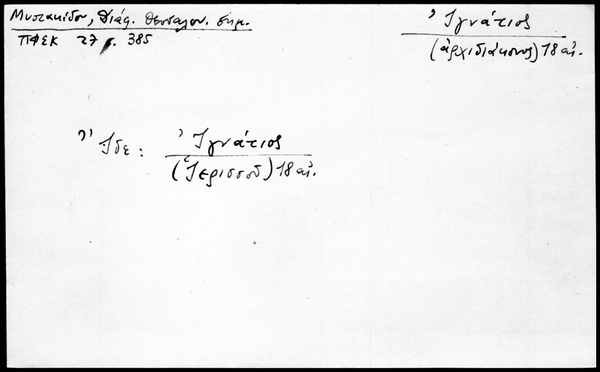 Μυστακίδου, Διάφ. Θεσσαλον. σημ.
ΠΦΕΚ 27 σ. 385
Ἰγνάτιος
(ἀρχιδιάκονος) 18 αἰ.
Ἴδε: Ἰγνάτιος
(Ἱερισσοῦ) 18 αἰ.